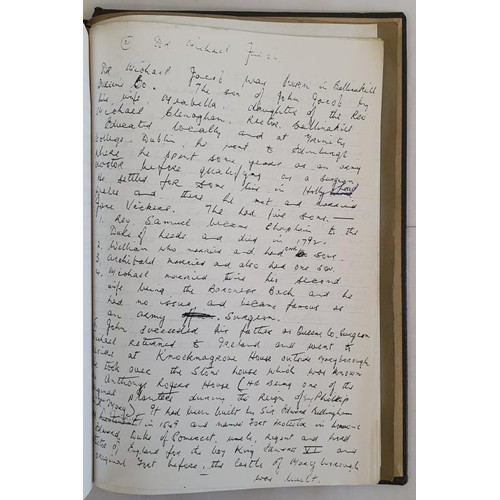 ② Dr Michael
Dr Michael Jacob was born in Ballinakill
Queens Co. The son of John Jacob by
his wife Arabella daughter of the Rev
Michael Clenaghan. Rector Ballinakill
Educated locally and at Trinity
College. Dublin. he went to Edinburgh
where he spent some years as an army
doctor before qualifying as a Surgeon
He settled for some time in Holly head
Wales and there he met and married
Jane Vickers. The had five sons.—
1. Rev Samuel became Chaplin to the
Duke of Leeds and died in 1792.
2. William who married and had one son.
3. Archibald married and also had one son.
4. Michael married twice his second
wife being the Baroness Bach and he
had no issue, and became famous as
an army Surgeon.
John succeeded his father as Queens Co. Surgeon
returned to Ireland and went to
at Knockmagrove House outside Maryborough
took over the Stone house which was known
Anthony Rogers House (He being one of the
planters during the Reign of Phillip
Mary). It had been built by Sir Edward Bellingham
in 1549 and named Fort Protector in
Edward, Duke of Somerset, uncle, regent and Lord
of England for the boy King Edward VI and
original Fort before, the castle of Maryborough
was built.